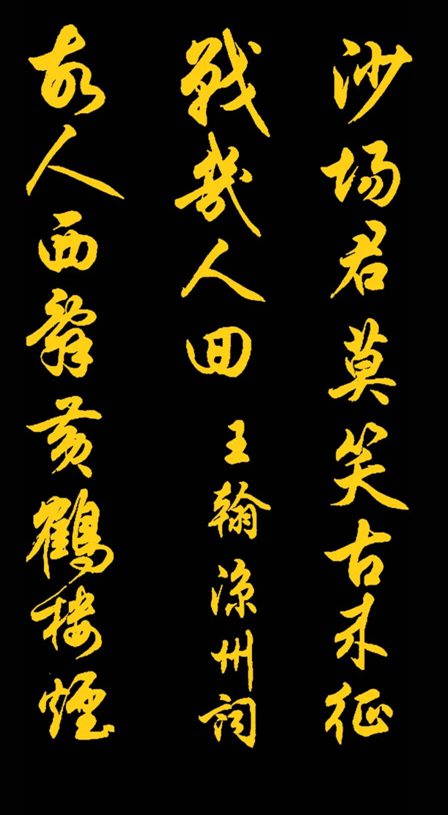 沙场君莫笑古来征
战几人回 王翰凉州词
故人西辞黄鹤楼烟